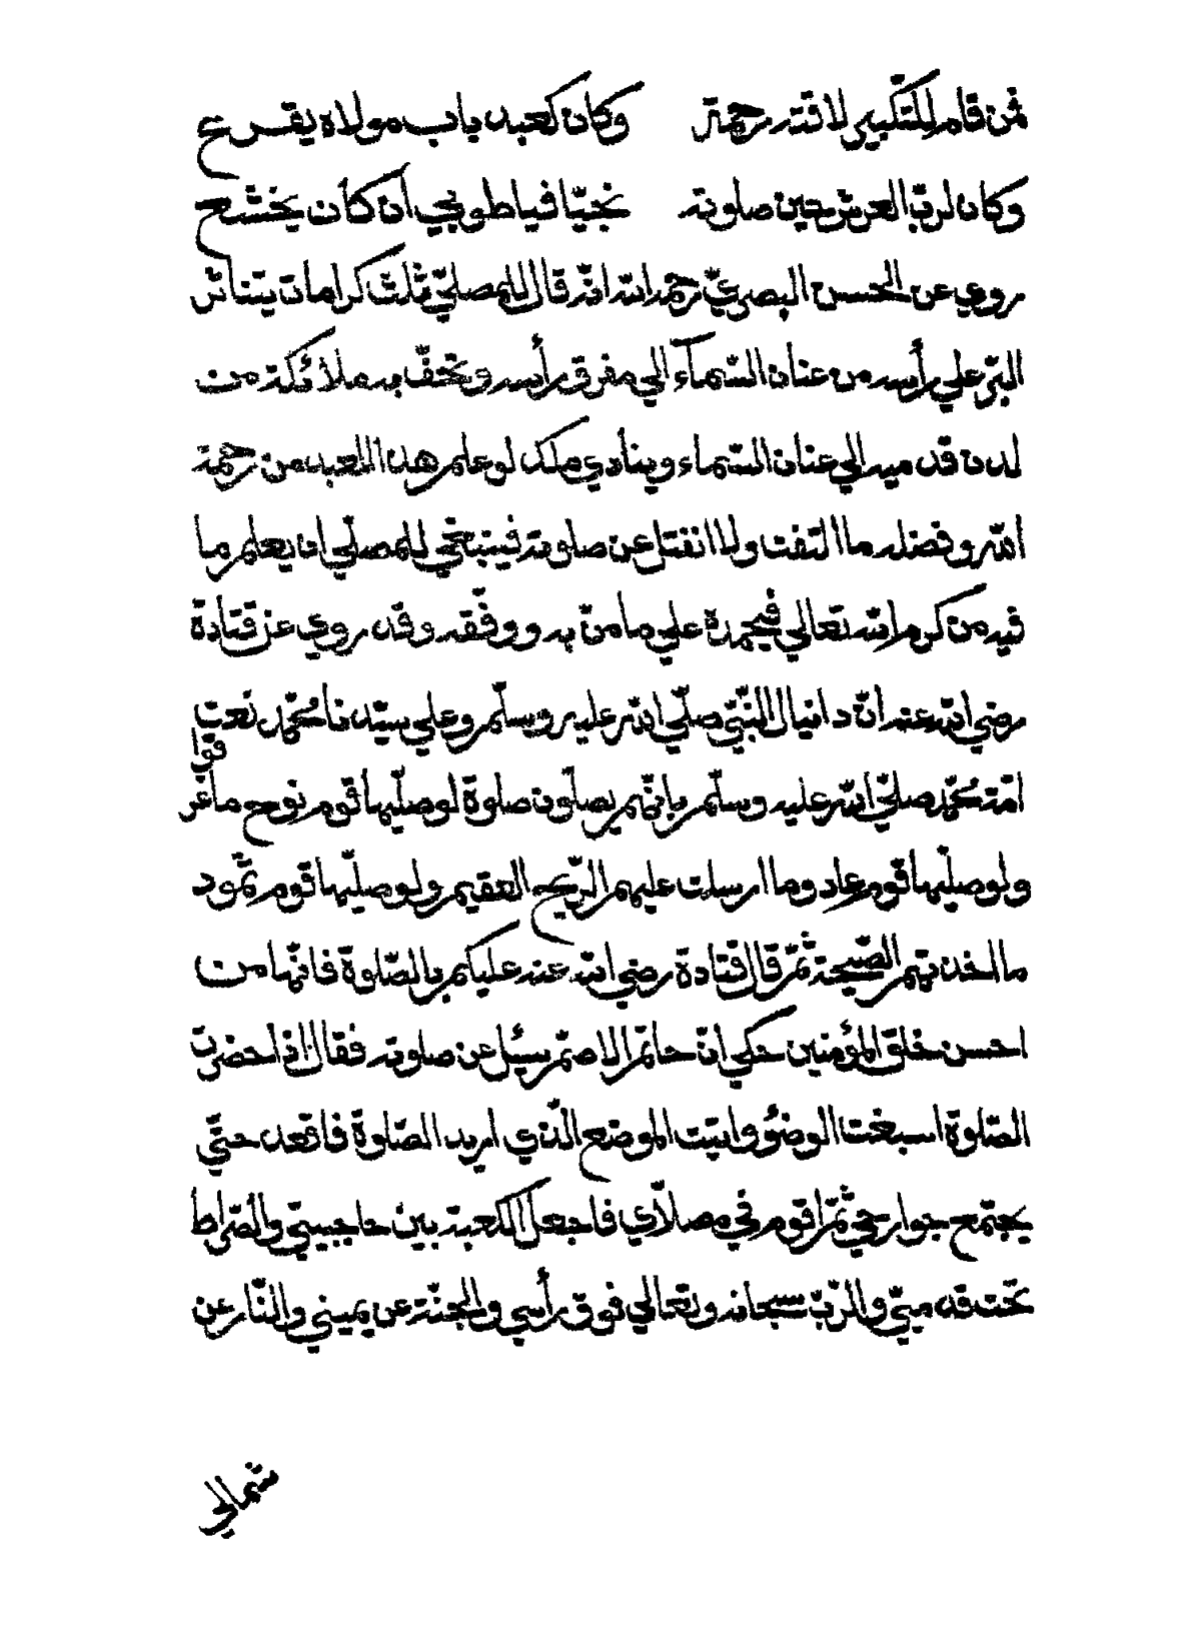 فمن قام للتكبير لاقته رحمة وكان كعبد باب مولاه يقرع
وكان لربّ العرش حين صلوته نجيّا فيا طوبي ان كان يخشع
روي عن الحسن البصريّ رحمه الله انّه قال للمصلّي ثلث كرامات يتناثر
البرّ علي رأسه من عنان السّمآء الي مفرق رأسه وتحفّ به ملائكة من
لدن قدميه الي عنان السّماء وينادي ملك لو علم هذا العبد من رحمة
الله وفضله ما التفت ولا انفتل عن صلوته فينبغي للمصلّي ان يعلم ما
فيه من كرم الله تعالي فيحمده علي ما منّ به ووفّقه وقد روي عن قتادة
رضي الله عنه انّ دانيال النّبيّ صلّي الله عليه وسلّم وعلي سيّدنا محمّد نعت
امّة محمّد صلّي الله عليه وسلّم بانّهم يصلّون صلوة لو صلّيها قوم نوح ما غرقوا
ولو صلّيها قوم عاد وما ارسلت عليهم الرّيح العقيم ولو صلّيها قوم ثمود
ما اخذتهم الصّيحة ثمّ قال قتادة رضي الله عنه عليكم بالصّلوة فانّها من
احسن خلق المؤمنين حكي انّ حاتم الاصمّ سئل عن صلوته فقال اذا حضرت
الصّلوة اسبغت الوضؤ وايتت الموضع الّذي اريد الصّلوة فاقعد حتّي
يجتمع جوارحي ثمّ اقوم في مصلّاي فاجعل الكعبة بين حاجبيّ والصّراط
تحت قدميّ والرّبّ سبحانه وتعالي فوق رأسي والجنّة عن يميني والنّار عن
شمالي